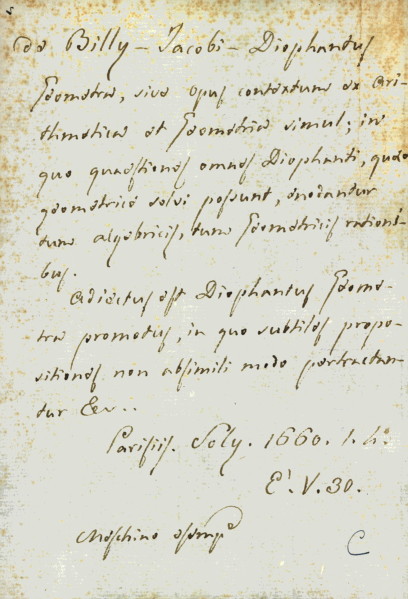 de Billy - Jacobi - Diophantus
Geometra, sive opus contextum ex Ari-
thmetica et Geometria simul; in
quo quaestiones omnes Diophanti, quae
geometrice solvi possunt, enodantur
tum algebricis, tum Geometricis rationi-
bus.
Adiectus est Diophantus Geome-
tra promotus, in quo subtiles propo-
sitiones non absimili modo pertractan-
tur &c..
Parisiis. Soly. 1660. 1. 4º
E'. V. 30.
Meschino
C